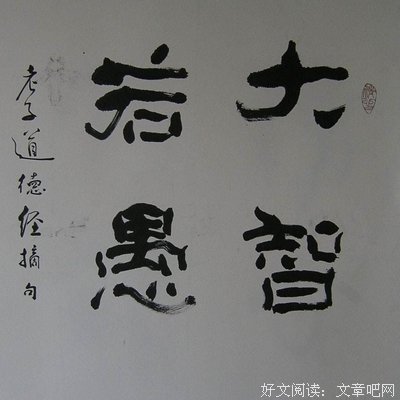 大智
若愚
老子道德经摘句
好文阅读：文章吧网